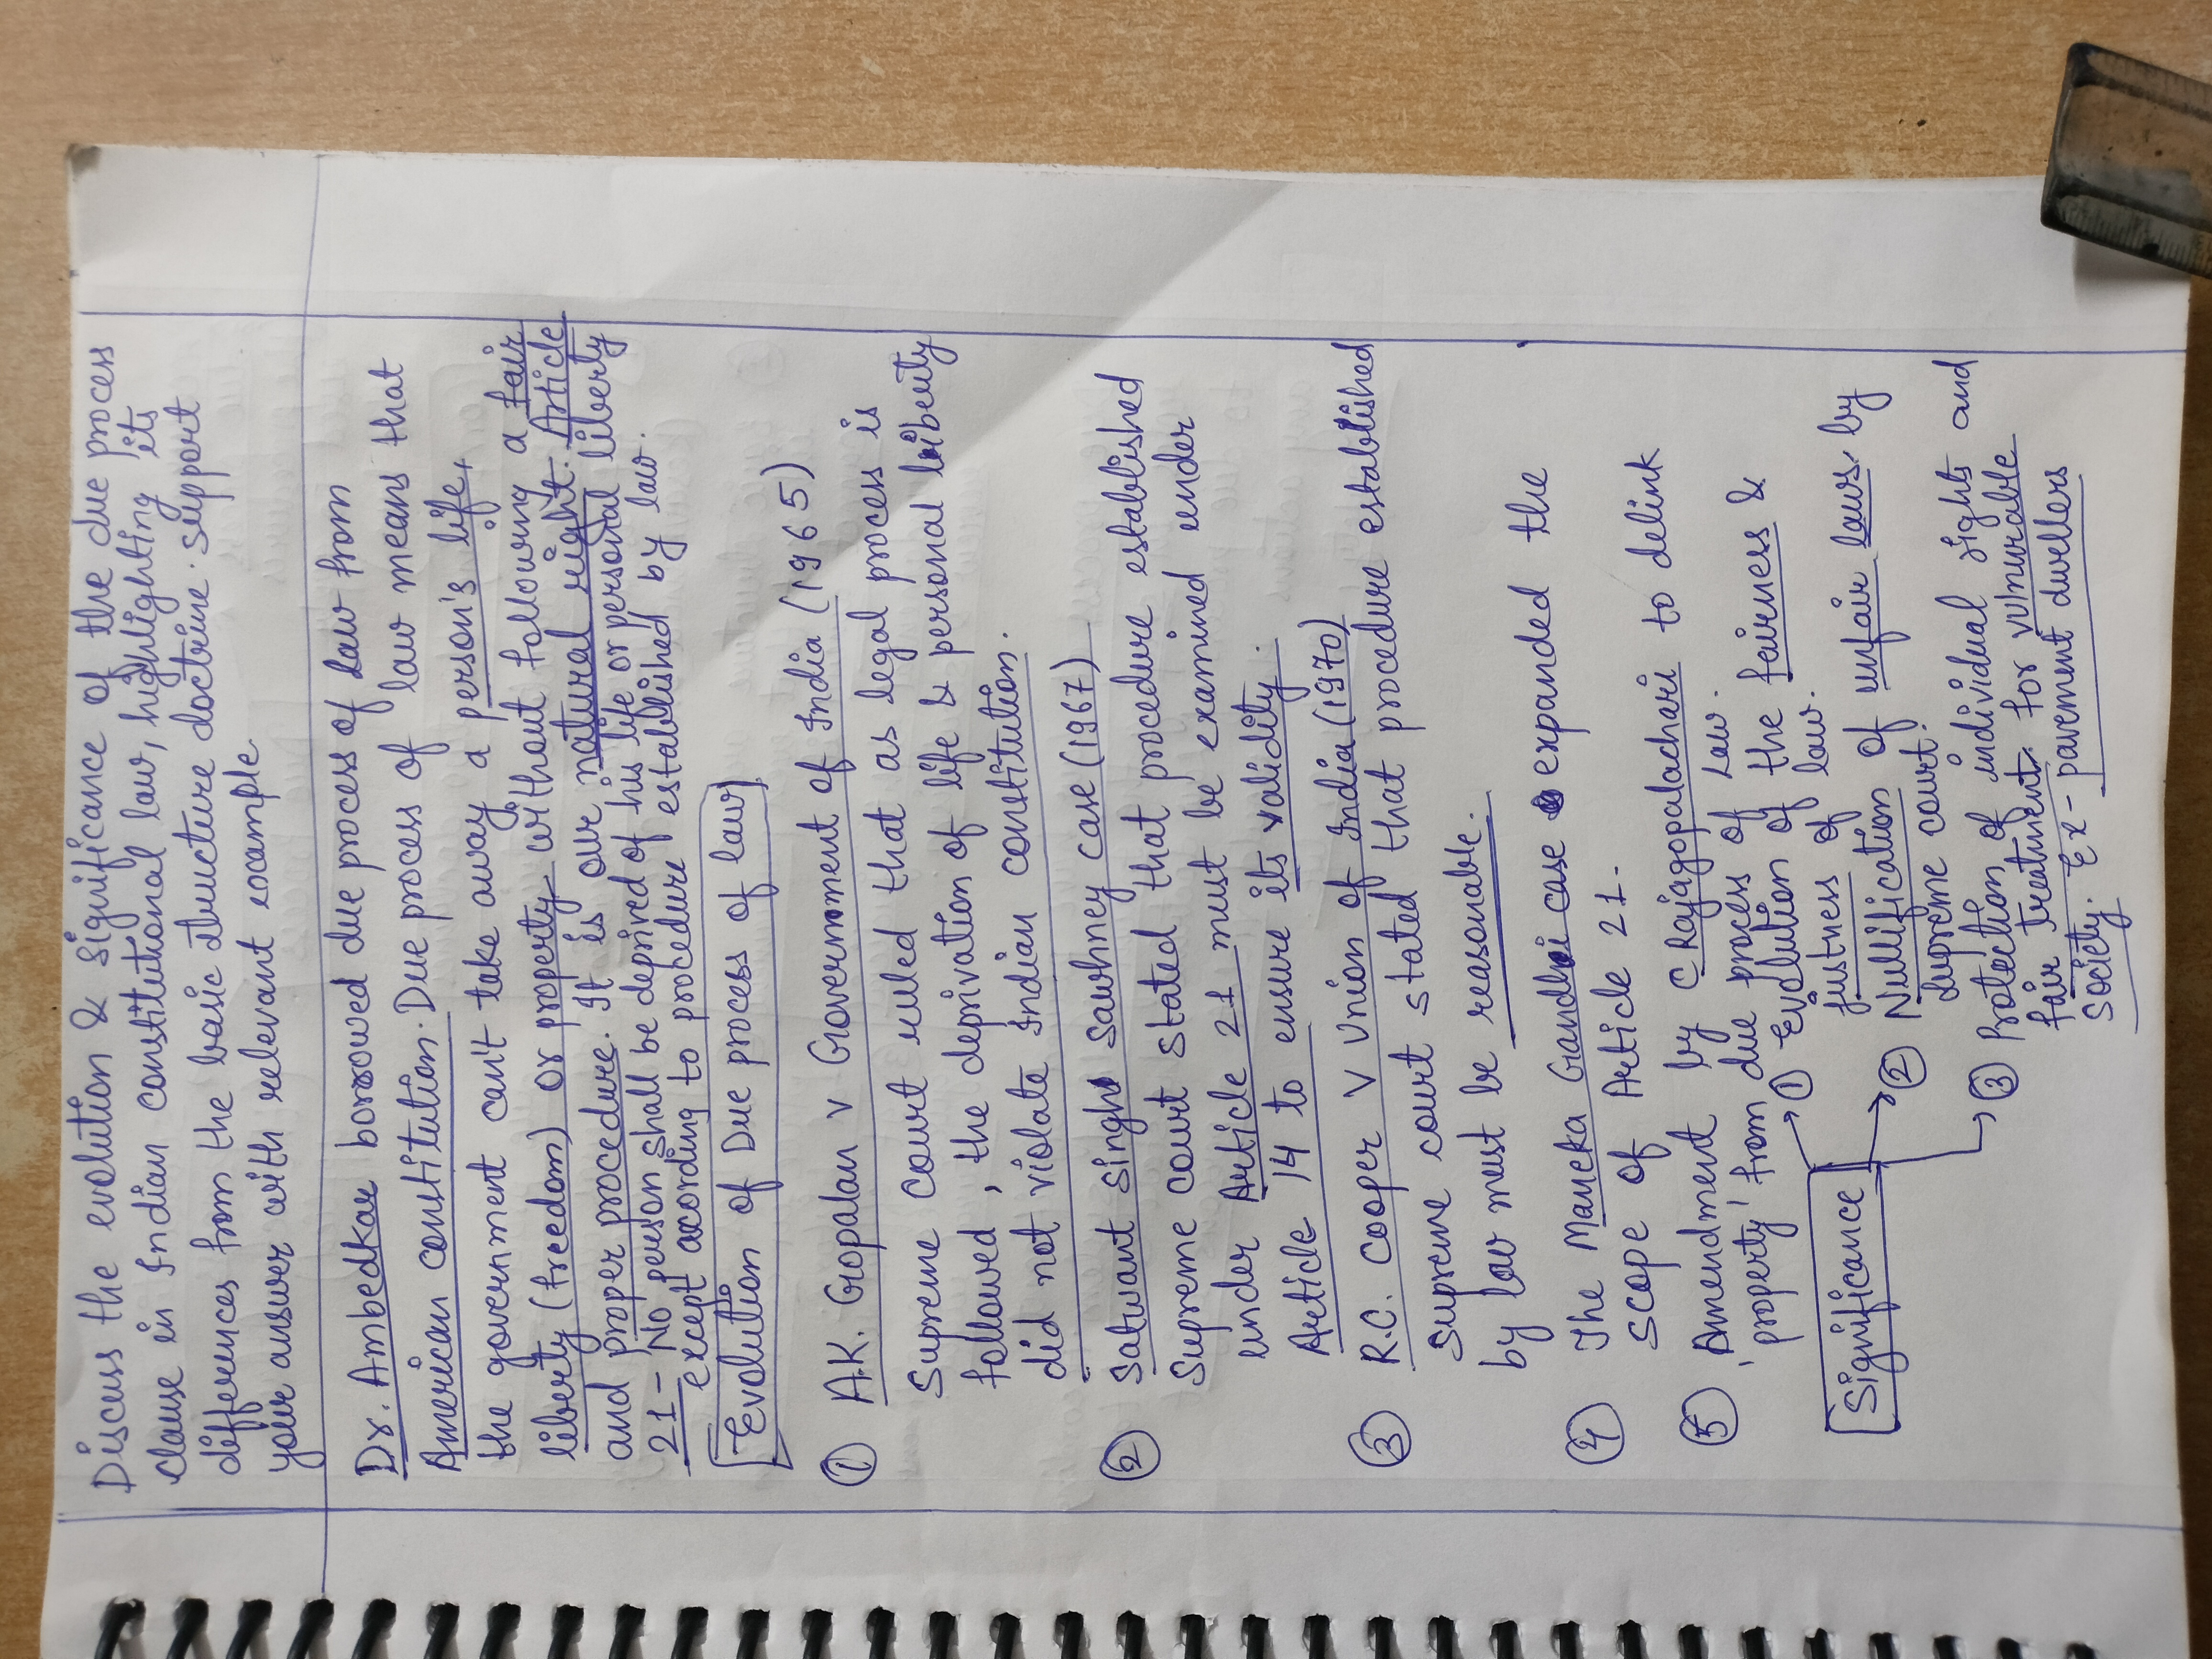 Discuss the evolution & significance of the due process
clause in Indian constitutional law, highlighting its
differences from the basic structure doctrine. support
your answer with relevant example.
Dr. Ambedkar borrowed due process of law from
American constitution. Due process of law means that
the government can't take away a person's life,
liberty (freedom) or property without following a fair
and proper procedure. It is our natural right. Article
21 - No person shall be deprived of his life or personal liberty
except according to procedure established by law.
Evolution of Due process of law
① A.K. Gopalan v Government of India (1965)
Supreme court ruled that as legal process is
followed, the deprivation of life & personal liberty
did not violate Indian constitution.
② Satwant Singh Sawhney case (1967)
Supreme court stated that procedure established
under Article 21 must be examined under
Article 14 to ensure its validity.
③ R.C. Cooper V Union of India (1970)
Supreme court stated that procedure established
by law must be reasonable.
④ The Maneka Gandhi case expanded the
scope of Article 21.
⑤ Amendment by C Rajagopalachari to delink
'property' from due process of Law.
Significance
① Evolution of the fairness &
justness of law.
② Nullification of unfair laws by
Supreme court.
③ Protection of individual rights and
fair treatment for vulnurable
society. Ex - pavement dwellers